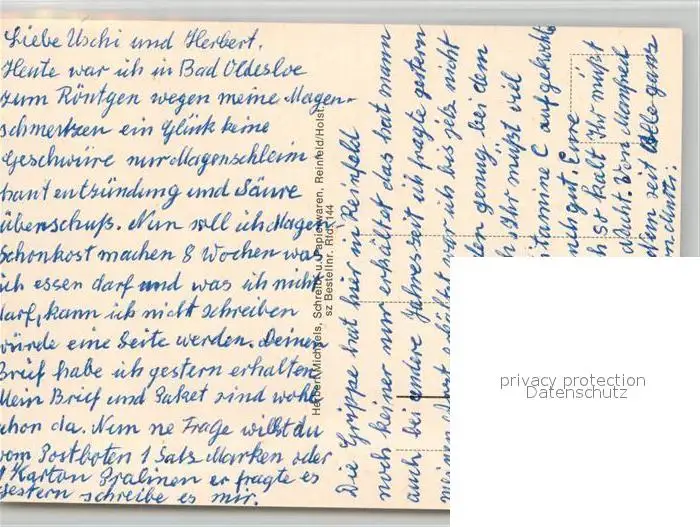 Liebe Uschi und Herbert,
Heute war ich in Bad Oldesloe
zum Röntgen wegen meine Magen-
schmertzen ein Glück keine
Geschwüre nur Magenschleim
haut entzündung und Säure
überschuß. Nun soll ich Magen
Schonkost machen 8 Wochen was
ich essen darf und was ich nicht
darf, kann ich nicht schreiben
würde eine Seite werden. Deinen
Brief habe ich gestern erhalten
Mein Brief und Paket sind wohl
schon da. Nun ne Frage willst du
vom Postboten 1 Satz Marken oder
1 Karton Pralinen er fragte es
gestern schreibe es mir.
Herbert Michaels, Schreib- u. Papierwaren, Reinfeld/Holst.
sz Bestellnr. Rfd. 144
Die Grippe hat hier in Reinfeld
noch keiner nur erhältet das hat mann
auch bei andere Jahreszeit ich fragte gestern
war ich bis jetz nicht
genug bei dem
Ihr müßt viel
Vitamine C aufgekocht
gut. Eure
so kalt Ihr müßt
Von Manfred
seit Alle ganz
privacy protection
Datenschutz